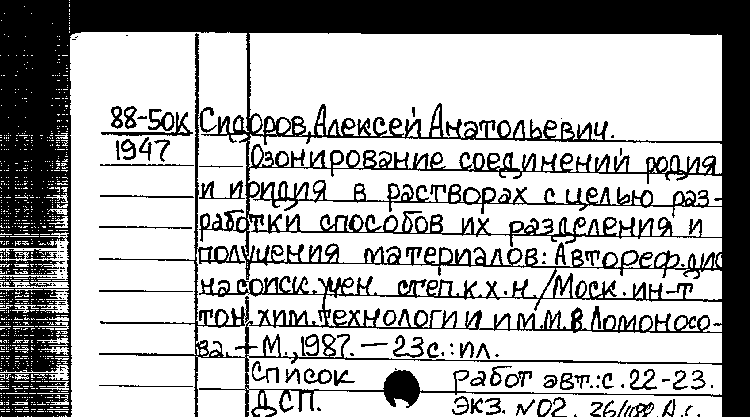 88-50К Сидоров, Алексей Анатольевич.
1947 Озонирование соединений родия
и иридия в растворах с целью раз-
работки способов их разделения и
получения материалов: Автореф. дис
на соиск. учен. степ. к.х.н. / Моск. ин-т
тон. хим. технологии им. М.В. Ломоносо-
ва. – М., 1987. – 23 с.: ил.
Список работ авт.: с. 22-23.
ДСП. Экз. №02.